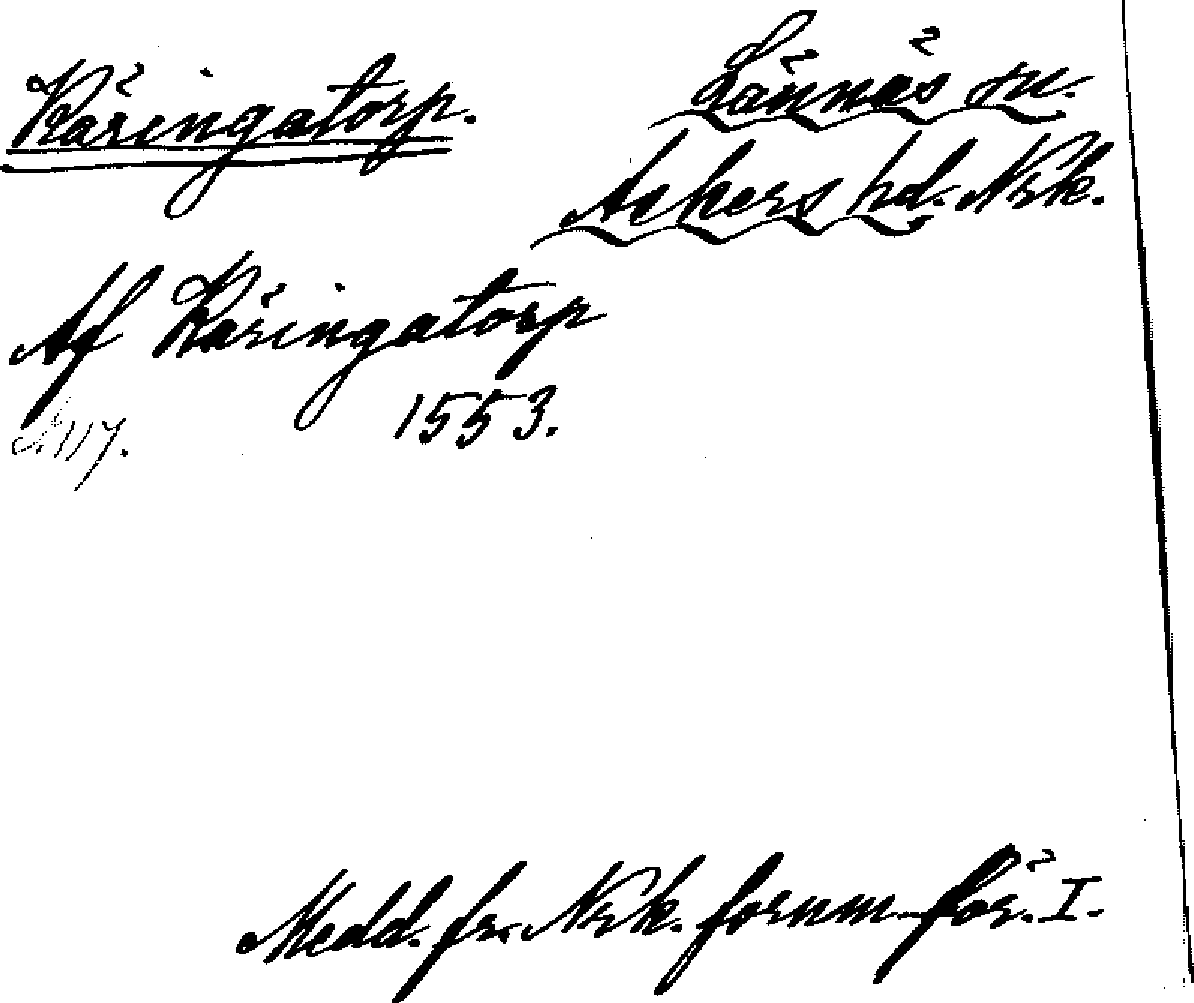 Käringatorp.
Lännäs sn.
Askers hd. Nrk.
Af Käringatorp
1553.
S. 117.
Medd. fr. Nrk. fornm. för. I.